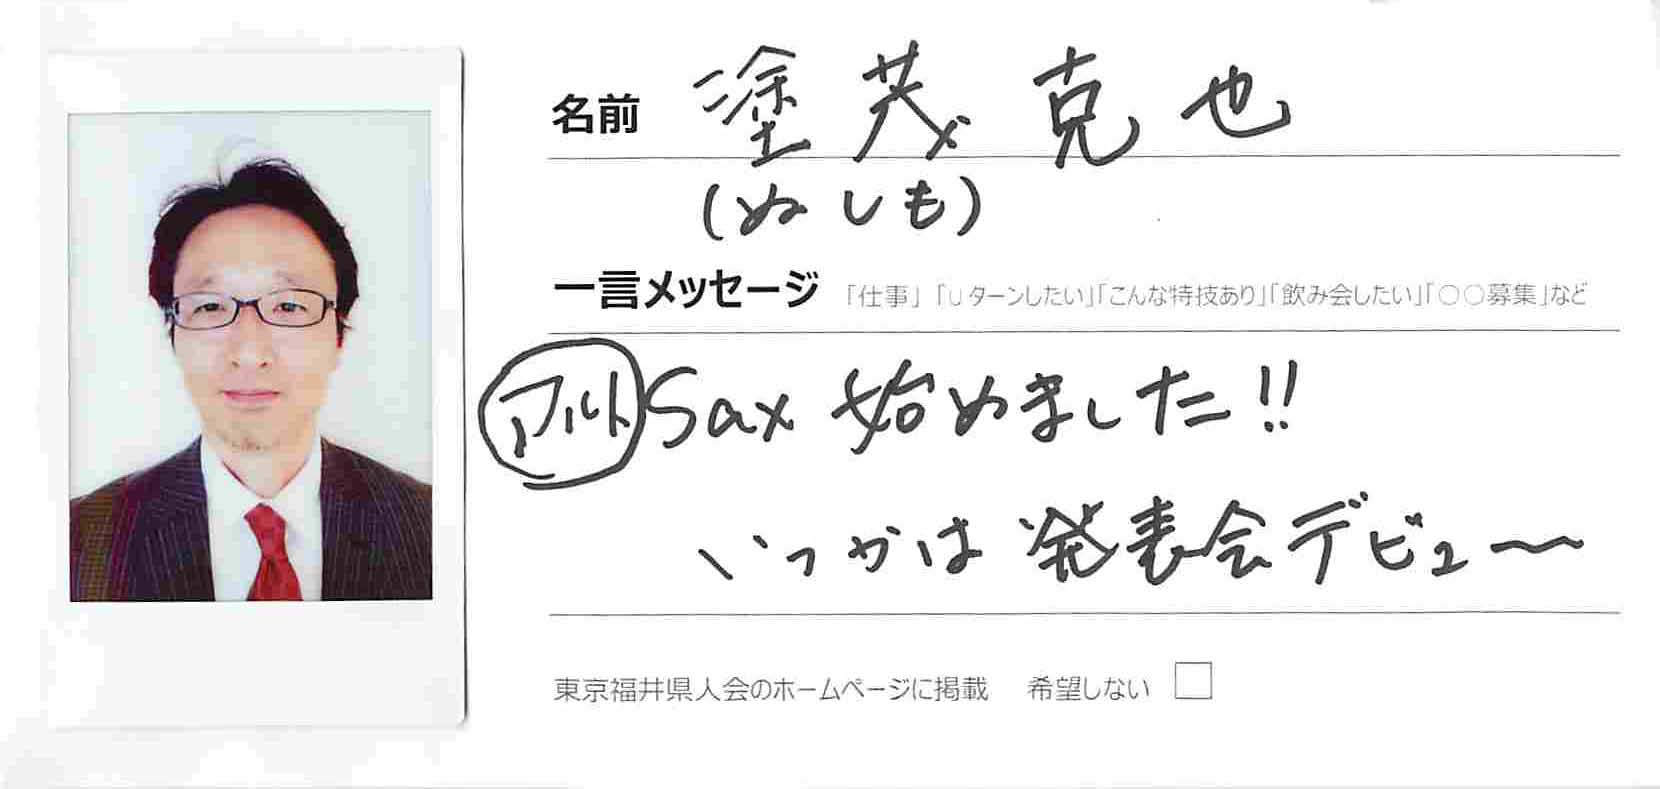 名前 塗茂克也
(ぬしも)
一言メッセージ 「仕事」「Uターンしたい」「こんな特技あり」「飲み会したい」「○○募集」など
アルト Sax 始めました!!
いつかは発表会デビュー〜
東京福井県人会のホームページに掲載 希望しない □